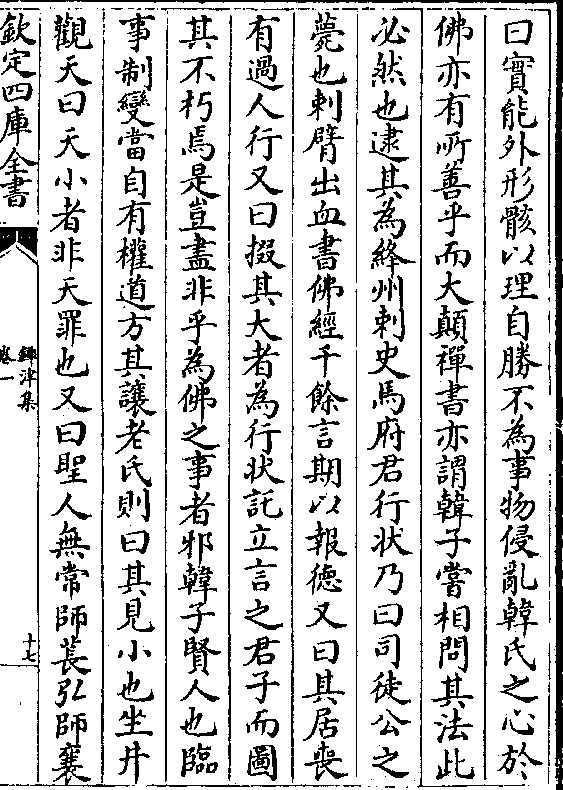 曰實能外形骸以理自勝不為事物侵亂韓氏之心於
佛亦有所善乎而大顛禪書亦謂韓子嘗相問其法此
必然也逮其為絳州刺史馬府君行状乃曰司徒公之
薨也刺臂出血書佛經千餘言期以報德又曰其居喪
有過人行又曰掇其大者為行状託立言之君子而圖
其不朽焉是豈盡非乎為佛之事者邪韓子賢人也臨
事制變當自有權道方其讓老氏則曰其見小也坐井
觀天曰天小者非天罪也又曰聖人無常師萇弘師襄
欽定四庫全書
鐔津集
卷一
十七